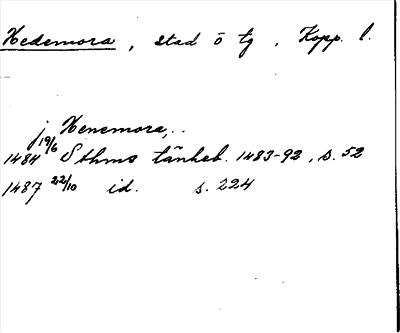 Hedemora, stad o tg, Kopp. l.
j Henemora,..
1484 19/6 Sthms tänkeb. 1483-92, s. 52
1487 22/10 id. s. 224